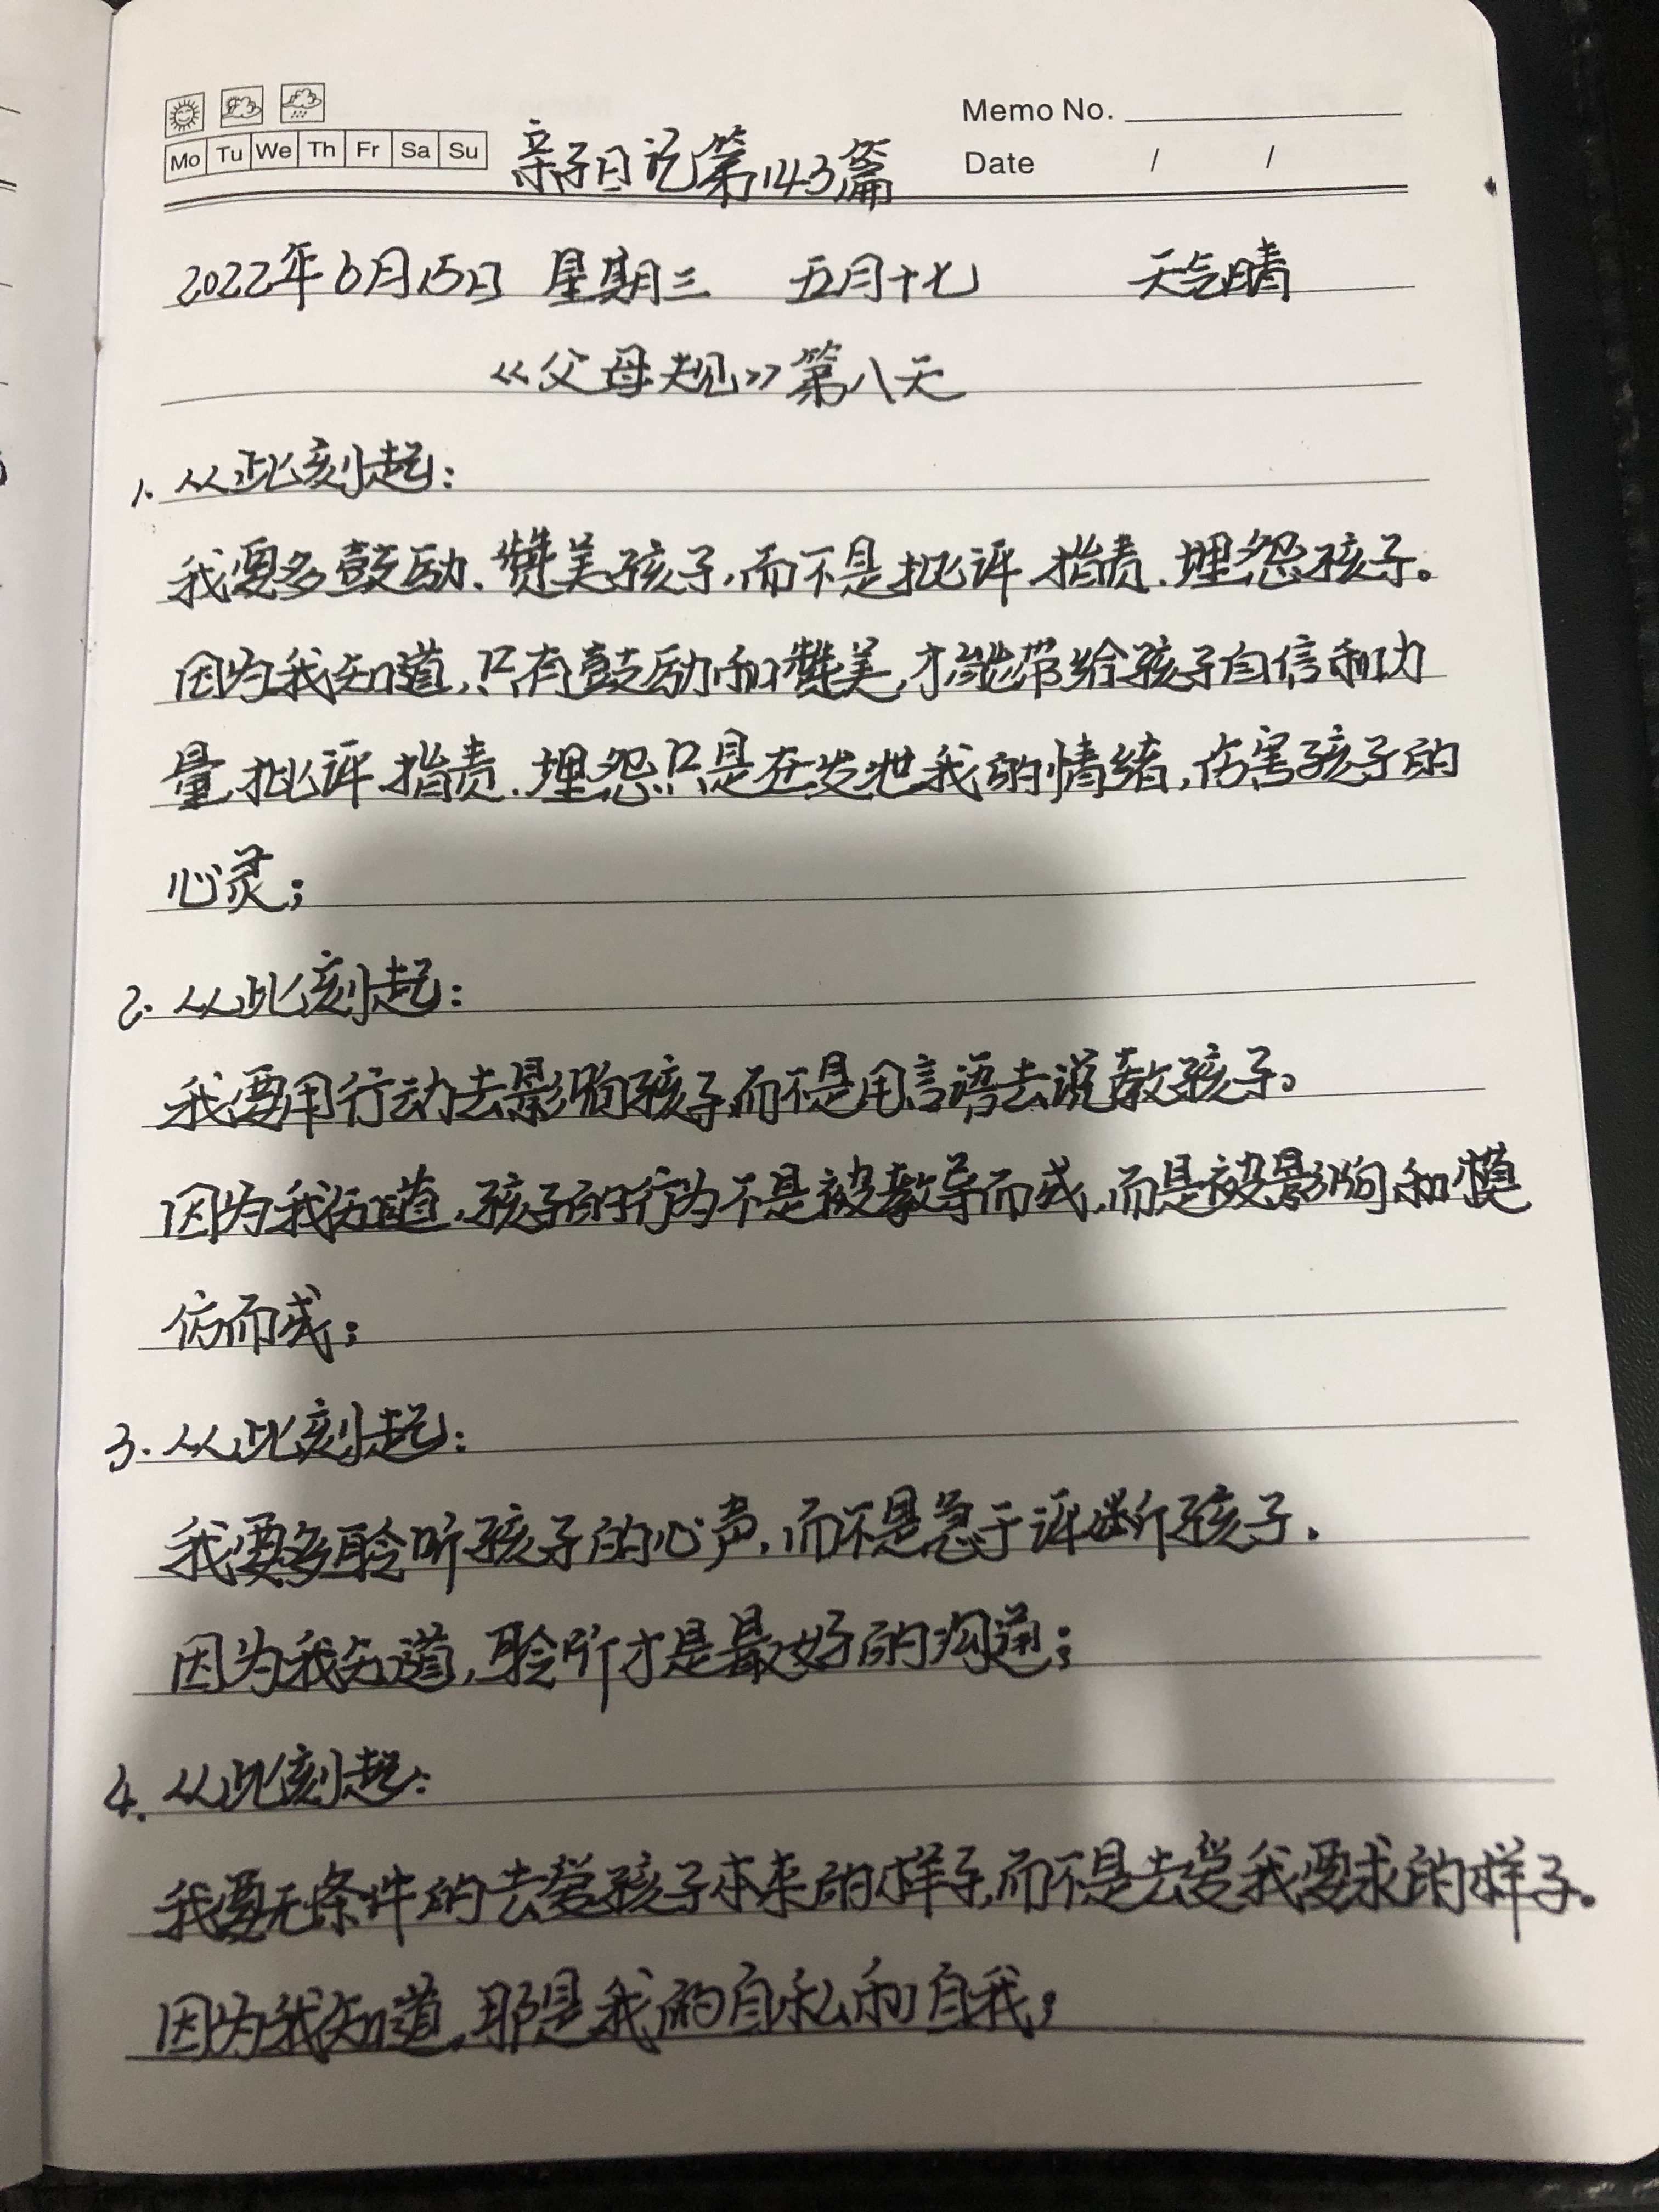 Memo No.
Mo Tu We Th Fr Sa Su
Date / /
亲子日记第143篇
2022年6月15日 星期三 五月十七 天气晴
《父母规》第八天
1. 从此刻起:
我要多鼓励、赞美孩子,而不是批评、指责、埋怨孩子。
因为我知道,只有鼓励和赞美,才能带给孩子自信和力
量,批评、指责、埋怨只是在发泄我的情绪,伤害孩子的
心灵;
2. 从此刻起:
我要用行动去影响孩子,而不是用言语去说教孩子。
因为我知道,孩子的行为不是被教导而成,而是被影响和模
仿而成;
3. 从此刻起:
我要多聆听孩子的心声,而不是急于评断孩子.
因为我知道,聆听才是最好的沟通;
4. 从此刻起:
我要无条件的去爱孩子本来的样子,而不是去爱我要求的样子。
因为我知道,那是我的自私和自我;